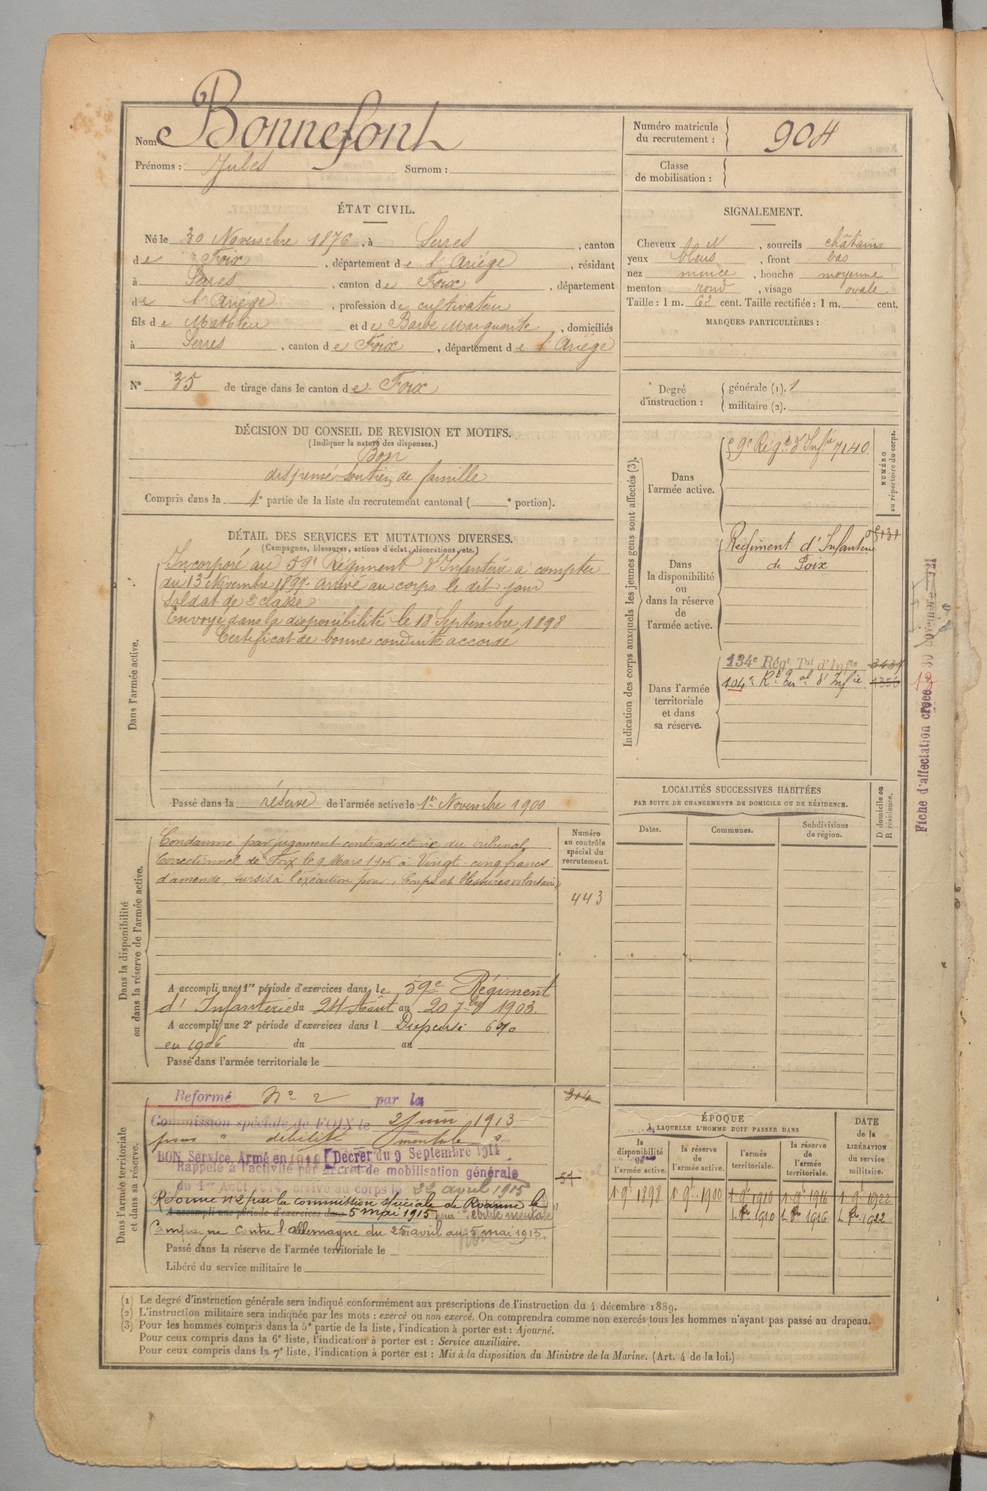 Nom Bonnefont
Prénoms : Jules Surnom :
Numéro matricule du recrutement : 904
Classe de mobilisation :
ÉTAT CIVIL.
Né le 30 Novembre 1876, à Serres, canton
de Foix, département de l'Ariége, résidant
à Serres, canton de Foix, département
de l'Ariége, profession de cultivateur
fils de Mathieu et de Barbe Marguerite, domiciliés
à Serres, canton de Foix, département de l'Ariége
N° 35 de tirage dans le canton de Foix
SIGNALEMENT.
Cheveux bl N, sourcils châtains
yeux bleus, front bas
nez mince, bouche moyenne
menton rond, visage ovale
Taille : 1 m. 62 cent. Taille rectifiée : 1 m. cent.
MARQUES PARTICULIÈRES :
Degré d'instruction : générale (1). 1
militaire (2).
DÉCISION DU CONSEIL DE REVISION ET MOTIFS.
(Indiquer la nature des dispenses.)
Bon
dispensé soutien de famille
Compris dans la 1e partie de la liste du recrutement cantonal ( e portion).
DÉTAIL DES SERVICES ET MUTATIONS DIVERSES.
(Campagnes, blessures, actions d'éclat, décorations, etc.)
Dans l'armée active.
Incorporé au 59e Régiment d'Infanterie à compter
du 13 Novembre 1897. arrivé au corps le dit jour
soldat de 2e classe
Envoyé dans la disponibilité le 18 Septembre 1898
Certificat de bonne conduite accordé
Passé dans la réserve de l'armée active le 1er Novembre 1900
Dans la disponibilité ou dans la réserve de l'armée active.
Condamné par jugement contradictoire du tribunal
Correctionnel de Foix le 9 Mars 1905 à Vingt cinq francs
d'amende, sursis à l'exécution pour : Coups et blessures volontaires
A accompli une 1re période d'exercices dans le 59e Régiment
d'Infanterie du 24 Août au 20 7bre 1903.
A accompli une 2e période d'exercices dans l Dispensé 6%
en 1906 du au
Passé dans l'armée territoriale le
Numéro au contrôle spécial du recrutement.
443
314
54
Dans l'armée territoriale et dans sa réserve.
Reformé N° 2 par la
Commission spéciale de FOIX le 21 juin 1913
pour " débilité mentale "
BON Service Armé en 1914 [Décret du 9 Septembre 1914
Rappelé à l'activité par décret de mobilisation générale
du 1er Août 1914, arrivé au corps le 22 avril 1915
Réformé n°2 par la commission spéciale de Roanne le
A accompli une période d'exercices dans 5 mai 1915 pour débilité mentale
Campagne contre l'allemagne du 25 avril au 5 mai 1915.
Passé dans la réserve de l'armée territoriale le
Libéré du service militaire le
Indication des corps auxquels les jeunes gens sont affectés (3).
NUMÉRO au répertoire du corps.
Dans l'armée active.
59e Régt d'Infie 7140
Dans la disponibilité ou dans la réserve de l'armée active.
Régiment d'Infanterie
de Foix
Dans l'armée territoriale et dans sa réserve.
134e Régt Tal d'Infie
104e Rt Teral d'Infie
Fiche d'affectation créée
LOCALITÉS SUCCESSIVES HABITÉES
PAR SUITE DE CHANGEMENTS DE DOMICILE OU DE RÉSIDENCE.
Dates. Communes. Subdivisions de région. D domicile ou R résidence.
ÉPOQUE
À LAQUELLE L'HOMME DOIT PASSER DANS
la disponibilité de l'armée active. la réserve de l'armée active. l'armée territoriale. la réserve de l'armée territoriale.
DATE de la LIBÉRATION du service militaire.
1 9e 1898 1 9e 1900 1 9e 1910 1 9e 1916 1 9e 1922
1910 1916 1922
(1) Le degré d'instruction générale sera indiqué conformément aux prescriptions de l'instruction du 4 décembre 1889.
(2) L'instruction militaire sera indiquée par les mots : exercé ou non exercé. On comprendra comme non exercés tous les hommes n'ayant pas passé au drapeau.
(3) Pour les hommes compris dans la 5e partie de la liste, l'indication à porter est : Ajourné.
Pour ceux compris dans la 6e liste, l'indication à porter est : Service auxiliaire.
Pour ceux compris dans la 7e liste, l'indication à porter est : Mis à la disposition du Ministre de la Marine. (Art. 4 de la loi.)